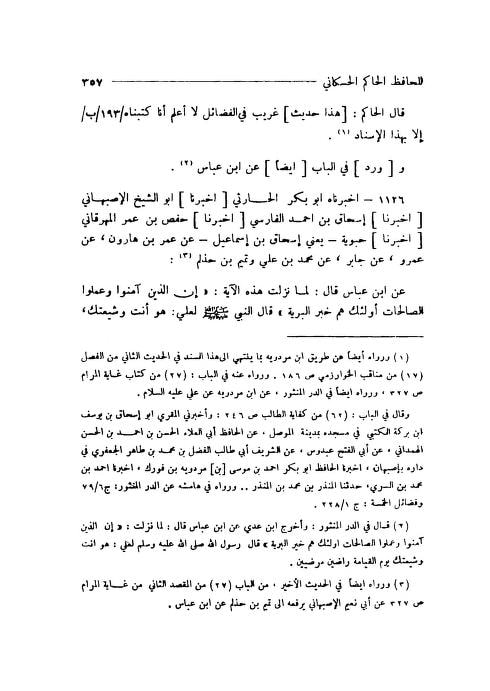 للحافظ الحاكم الحسكاني ٣٥٧
قال الحاكم : [هذا حديث] غريب في الفضائل لا أعلم أنا كتبناه/١٩٣/ب/
إلا بهذا الإسناد (١) .
و [ ورد ] في الباب [ ايضاً ] عن ابن عباس (٢) .
١١٢٦ – اخبرناه ابو بكر الحارثي [ اخبرنا ] ابو الشيخ الإصبهاني
[ اخبرنا ] إسحاق بن احمد الفارسي [ اخبرنا ] حفص بن عمر المهرقاني
[ اخبرنا ] حبوية – يعني إسحاق بن إسماعيل – عن عمر بن هارون ، عن
عمرو ، عن جابر ، عن محمد بن علي وتميم بن حذلم (٣) :
عن ابن عباس قال : لما نزلت هذه الآية : « إن الذين آمنوا وعملوا
الصالحات أولئك هم خير البرية » قال النبي ﷺ لعلي: هو أنت وشيعتك،
(١) ورواه أيضاً عن طريق ابن مردويه بما ينتهي الى هذا السند في الحديث الثاني من الفصل
(١٧) من مناقب الخوارزمي ص ١٨٦ . ورواه عنه في الباب : (٢٧) من كتاب غاية المرام
ص ٣٢٧ ، ورواه ايضاً في الدر المنثور ، عن ابن مردويه عن علي عليه السلام .
وقال في الباب : (٦٢) من كفاية الطالب ص ٢٤٦ : وأخبرني المقري ابو إسحاق بن يوسف
ابن بركة الكتبي في مسجده بمدينة الموصل ، عن الحافظ أبي العلاء الحسن بن احمد بن الحسن
الهمداني ، عن أبي الفتح عبدوس ، عن الشريف أبي طالب الفضل بن محمد بن طاهر الجعفري في
داره بإصبهان ، اخبرنا الحافظ ابو بكر احمد بن موسى [بن] مردويه بن فورك ، اخبرنا احمد بن
محمد بن السري، حدثنا المنذر بن محمد بن المنذر .. ورواه في هامشه عن الدر المنثور: ج٦/٧٩
وفضائل الخمسة : ج ٢٢٨/١ .
(٢) قال في الدر المنثور : وأخرج ابن عدي عن ابن عباس قال : لما نزلت : « إن الذين
آمنوا وعملوا الصالحات اولئك هم خير البرية » قال رسول الله صلى الله عليه وسلم لعلي : هو انت
وشيعتك يوم القيامة راضين مرضيين .
(٣) ورواه ايضاً في الحديث الأخير ، من الباب (٢٧) من المقصد الثاني من غاية المرام
ص ٣٢٧ عن أبي نعيم الإصبهاني يرفعه الى تميم بن حذلم عن ابن عباس .